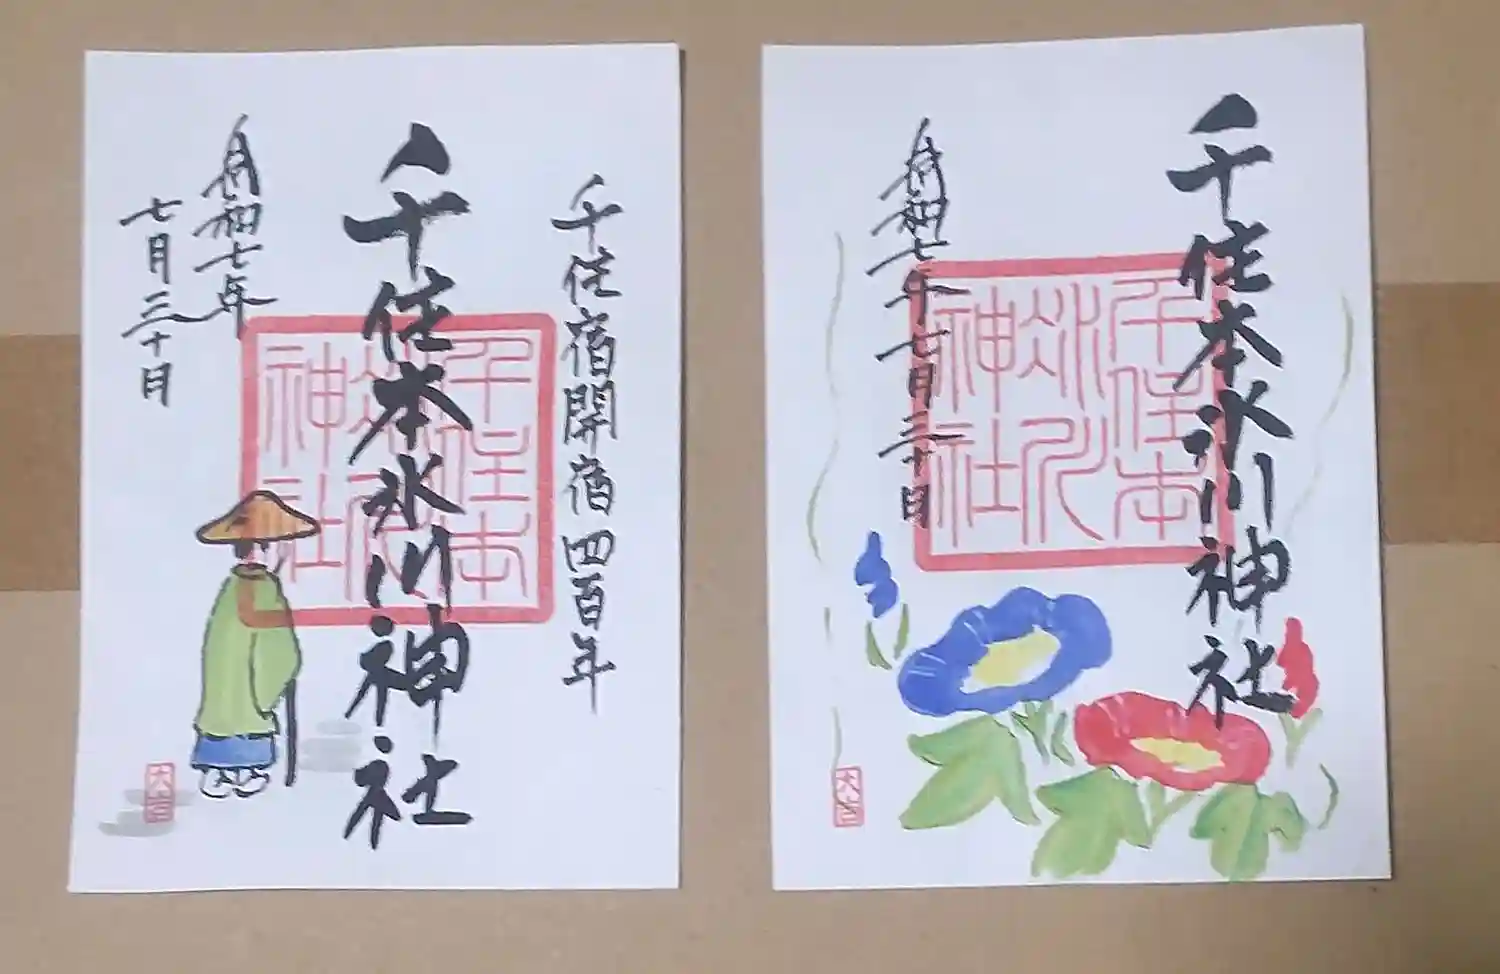 千住宿開宿四百年
千住本氷川神社
令和七年
七月三十日
千住本
氷川
神社
大吉
千住本氷川神社
令和七年七月三十日
千住本
氷川
神社
大吉